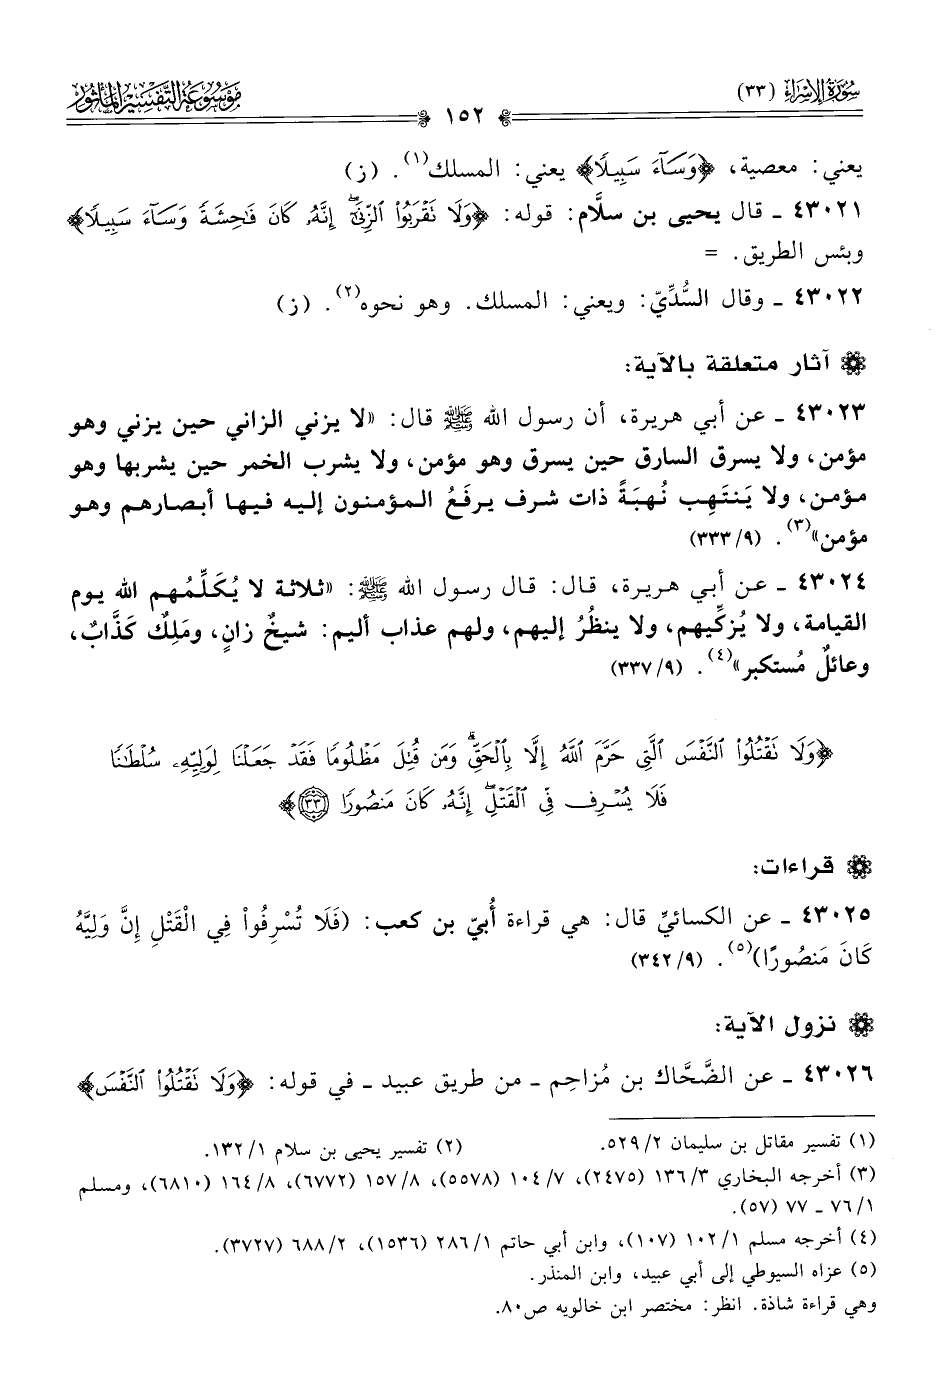 سُورَةُ الإِسْرَاءِ (٣٣)
١٥٢
مَوْسُوعَةُ التَّفْسِيرِ المَأْثُورِ
يعني: معصية، ﴿وَسَآءَ سَبِيلًا﴾ يعني: المسلك(١). (ز)
٤٣٠٢١ ـ قال يحيى بن سلَّام: قوله: ﴿وَلَا تَقْرَبُوا۟ ٱلزِّنَىٰٓ إِنَّهُۥ كَانَ فَٰحِشَةً وَسَآءَ سَبِيلًا﴾
وبئس الطريق. =
٤٣٠٢٢ ـ وقال السُّدِّيّ: ويعني: المسلك. وهو نحوه(٢). (ز)
آثار متعلقة بالآية:
٤٣٠٢٣ ـ عن أبي هريرة، أن رسول الله ﷺ قال: «لا يزني الزاني حين يزني وهو
مؤمن، ولا يسرق السارق حين يسرق وهو مؤمن، ولا يشرب الخمر حين يشربها وهو
مؤمن، ولا يَنتَهِب نُهبَةً ذات شرف يرفَعُ المؤمنون إليه فيها أبصارهم وهو
مؤمن»(٣). (٩/ ٣٣٣)
٤٣٠٢٤ ـ عن أبي هريرة، قال: قال رسول الله ﷺ: «ثلاثة لا يُكَلِّمُهم الله يوم
القيامة، ولا يُزكِّيهم، ولا ينظُرُ إليهم، ولهم عذاب أليم: شيخٌ زانٍ، ومَلِكٌ كَذَّابٌ،
وعائلٌ مُستكبر»(٤). (٩/ ٣٣٧)
﴿وَلَا تَقْتُلُوا۟ ٱلنَّفْسَ ٱلَّتِى حَرَّمَ ٱللَّهُ إِلَّا بِٱلْحَقِّ ۗ وَمَن قُتِلَ مَظْلُومًا فَقَدْ جَعَلْنَا لِوَلِيِّهِۦ سُلْطَٰنًا
فَلَا يُسْرِف فِّى ٱلْقَتْلِ ۖ إِنَّهُۥ كَانَ مَنصُورًا ٣٣﴾
قراءات:
٤٣٠٢٥ ـ عن الكسائيّ قال: هي قراءة أُبيّ بن كعب: (فَلَا تُسْرِفُواْ فِي الْقَتْلِ إِنَّ وَلِيَّهُ
كَانَ مَنصُورًا)(٥). (٩/ ٣٤٢)
نزول الآية:
٤٣٠٢٦ ـ عن الضَّحَّاك بن مُزاحِم ـ من طريق عبيد ـ في قوله: ﴿وَلَا تَقْتُلُوا۟ ٱلنَّفْسَ﴾
(١) تفسير مقاتل بن سليمان ٢/ ٥٢٩. (٢) تفسير يحيى بن سلام ١/ ١٣٢.
(٣) أخرجه البخاري ٣/ ١٣٦ (٢٤٧٥)، ٧/ ١٠٤ (٥٥٧٨)، ٨/ ١٥٧ (٦٧٧٢)، ٨/ ١٦٤ (٦٨١٠)، ومسلم
١/ ٧٦ ـ ٧٧ (٥٧).
(٤) أخرجه مسلم ١/ ١٠٢ (١٠٧)، وابن أبي حاتم ١/ ٢٨٦ (١٥٣٦)، ٢/ ٦٨٨ (٣٧٢٧).
(٥) عزاه السيوطي إلى أبي عبيد، وابن المنذر.
وهي قراءة شاذة. انظر: مختصر ابن خالويه ص٨٠.